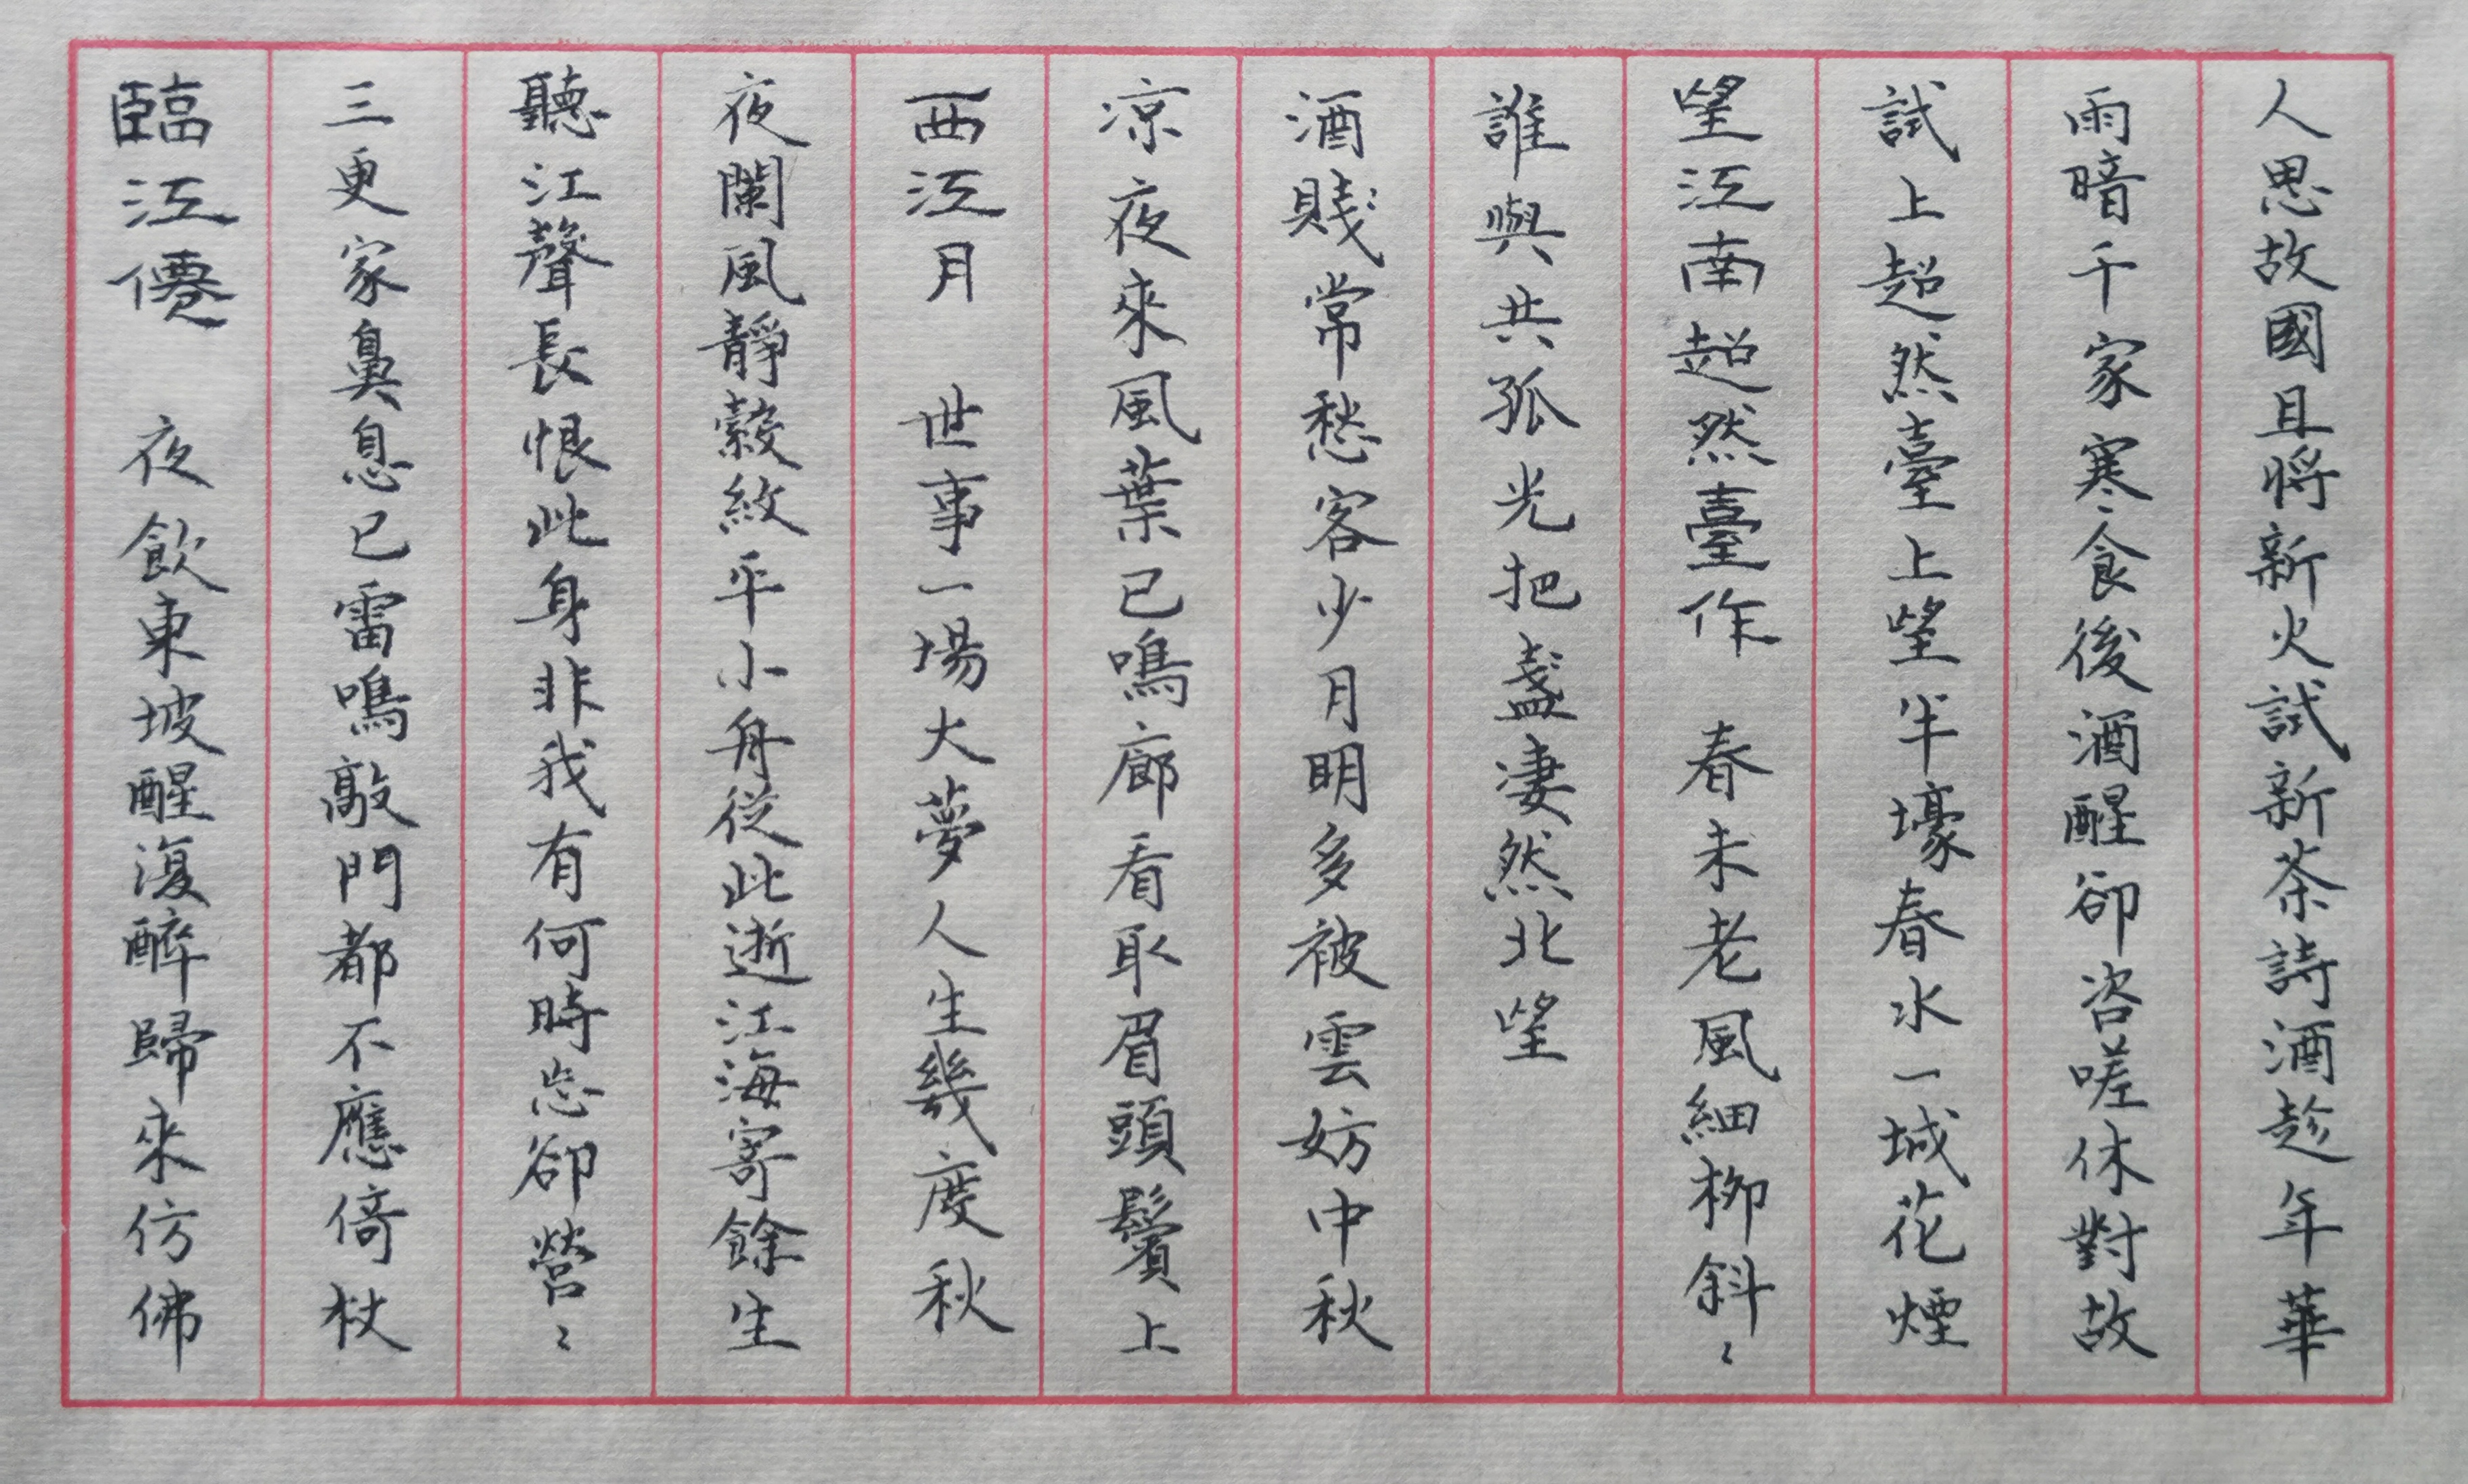 臨江僊 夜飲東坡醒復醉歸來仿佛
三更家鼻息已雷鳴敲門都不應倚杖
聽江聲長恨此身非我有何時忘卻營〻
夜闌風靜縠紋平小舟従此逝江海寄餘生
西江月 世事一場大夢人生幾度秋
凉夜來風葉已鳴廊看取眉頭鬢上
酒賤常愁客少月明多被雲妨中秋
誰與共孤光把盞淒然北望
望江南超然臺作 春未老風細柳斜〻
試上超然臺上望半壕春水一城花煙
雨暗千家寒食後酒醒卻咨嗟休對故
人思故國且將新火試新茶詩酒趁年華